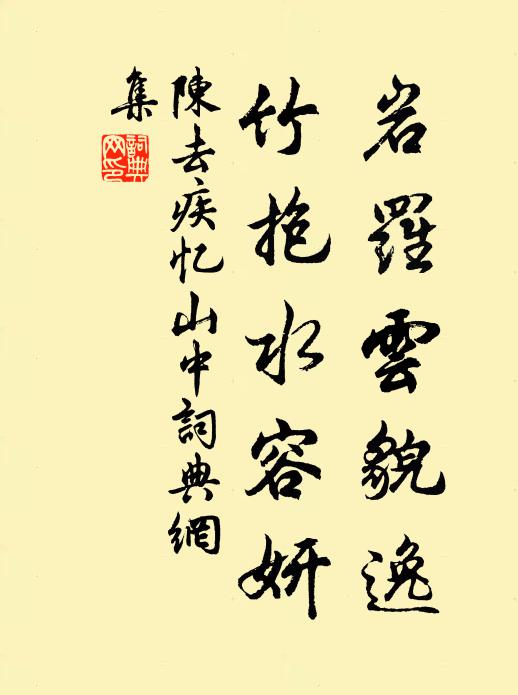 岩羅雲貌逸
竹抱水容妍
陳去疾忆山中詞典網
集
詞典
网印